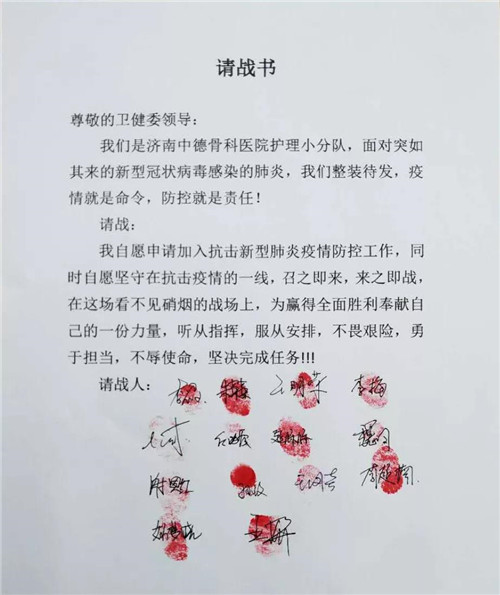 请战书
尊敬的卫健委领导：
我们是济南中德骨科医院护理小分队，面对突如
其来的新型冠状病毒感染的肺炎，我们整装待发，疫
情就是命令，防控就是责任！
请战：
我自愿申请加入抗击新型肺炎疫情防控工作，同
时自愿坚守在抗击疫情的一线，召之即来，来之即战，
在这场看不见硝烟的战场上，为赢得全面胜利奉献自
己的一份力量，听从指挥，服从安排，不畏艰险，勇
于担当，不辱使命，坚决完成任务!!!
请战人： 王明荣 李梅